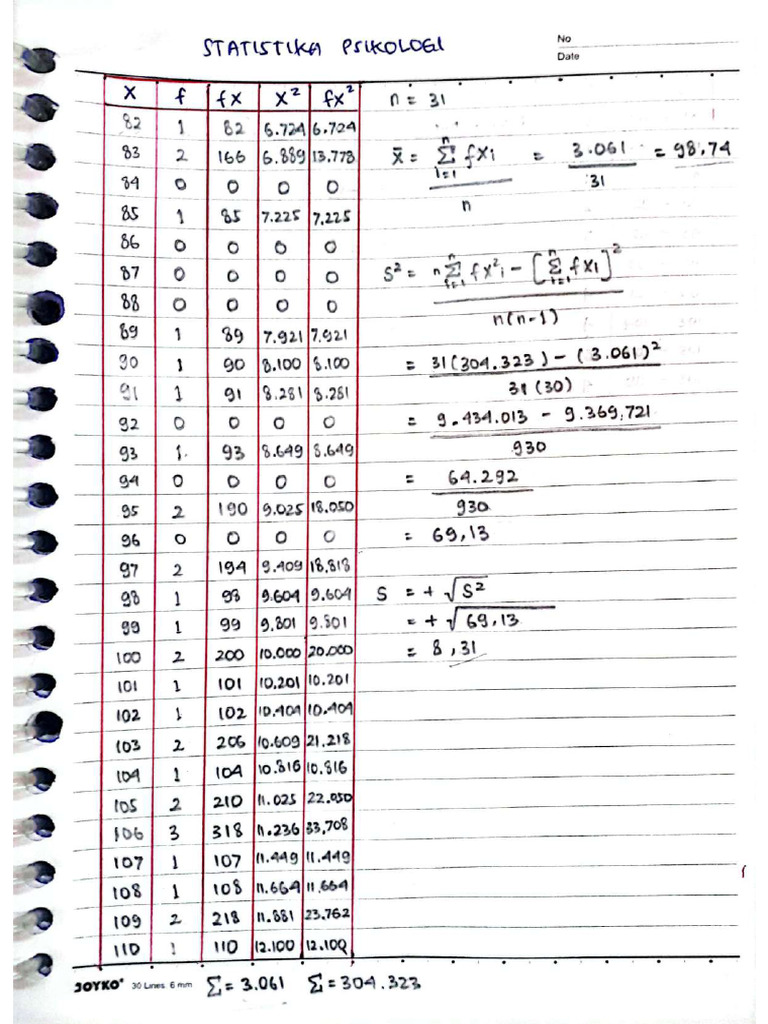 STATISTIKA PSIKOLOGI
No
Date
X f fx x² fx²
82 1 82 6.724 6.724
83 2 166 6.889 13.778
84 0 0 0 0
85 1 85 7.225 7.225
86 0 0 0 0
87 0 0 0 0
88 0 0 0 0
89 1 89 7.921 7.921
90 1 90 8.100 8.100
91 1 91 8.281 8.281
92 0 0 0 0
93 1 93 8.649 8.649
94 0 0 0 0
95 2 190 9.025 18.050
96 0 0 0 0
97 2 194 9.409 18.818
98 1 98 9.604 9.604
99 1 99 9.801 9.801
100 2 200 10.000 20.000
101 1 101 10.201 10.201
102 1 102 10.404 10.404
103 2 206 10.609 21.218
104 1 104 10.816 10.816
105 2 210 11.025 22.050
106 3 318 11.236 33,708
107 1 107 11.449 11.449
108 1 108 11.664 11.664
109 2 218 11.881 23.762
110 1 110 12.100 12.100
Σ = 3.061 Σ = 304.323
n = 31
x̄ = Σ(i=1, n) fxi / n = 3.061 / 31 = 98,74
S² = n Σ(i=1, n) fx²i − [Σ(i=1, n) fxi]² / n(n-1)
= 31(304.323) − (3.061)² / 31(30)
= 9.434.013 − 9.369,721 / 930
= 64.292 / 930
= 69,13
S = + √S²
= + √69,13
= 8,31
JOYKO® 30 Lines 6 mm